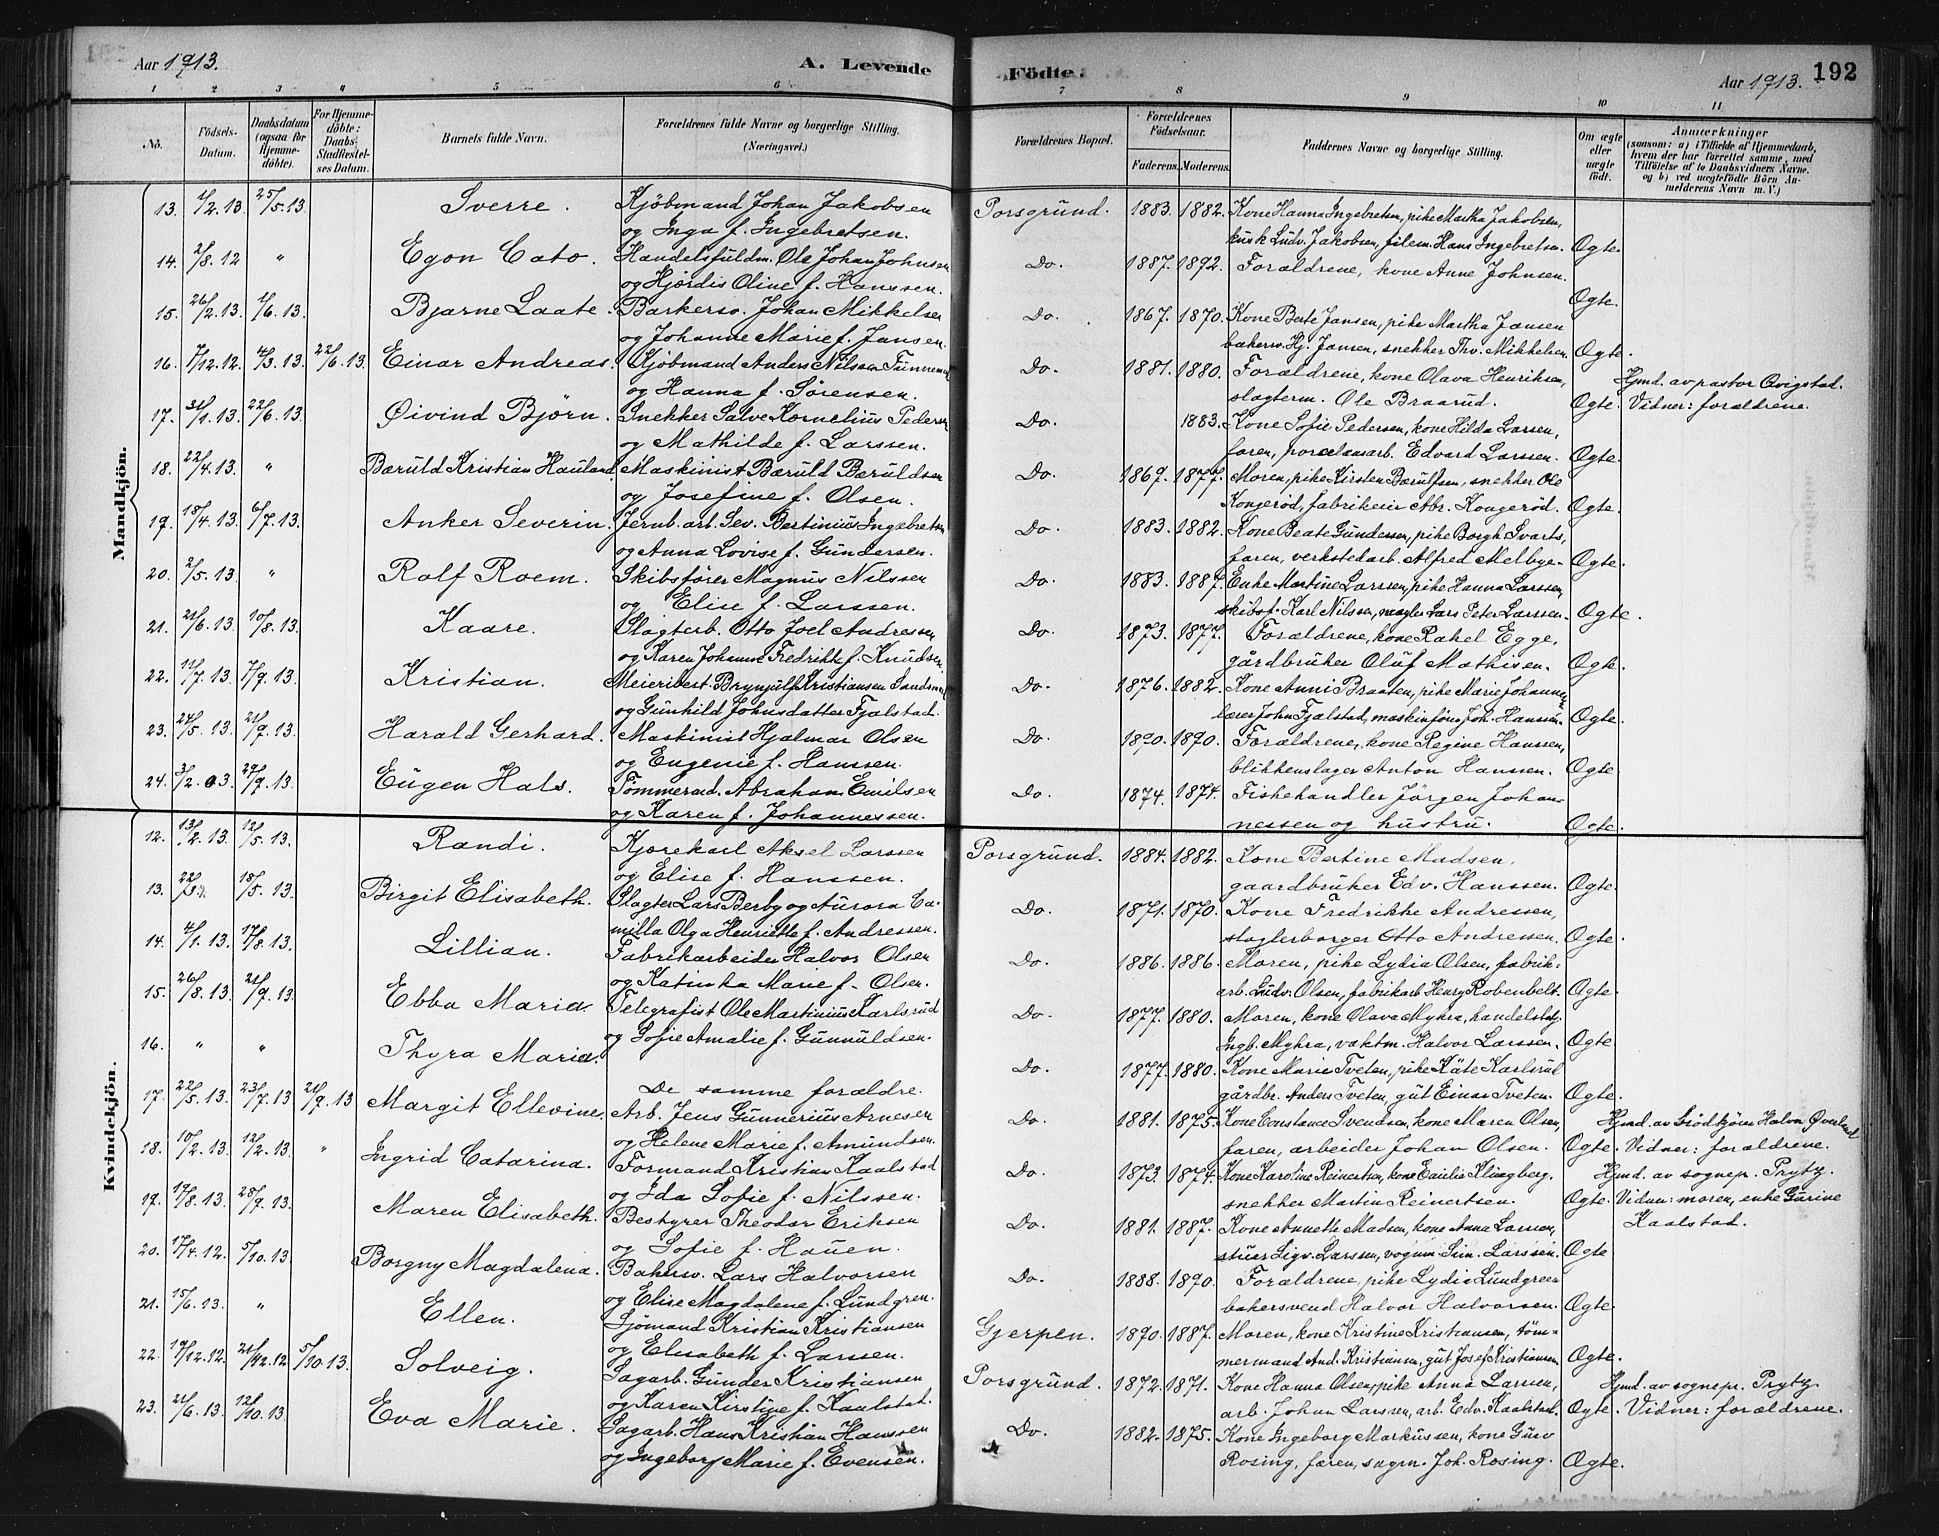 Aar 1913.
A. Levende
1 2 3 4 5 6
No.
Födsels-Datum.
Daabsdatum (ogsaa for Hjemme-döbte).
For Hjemme-döbte: Daabs-Stadfæstel-ses Datum.
Barnets fulde Navn.
Forældrenes fulde Navne og borgerlige Stilling. (Næringsvei.)
Mandkjön.
13. 4/2.13 25/5.13 Sverre. Kjöbmand Johan Jakobsen
og Inga f. Ingebretsen.
14. 2/8.12 " Egon Cato. Handelsfuldm. Ole Johan Johnsen
og Hjördis Oline f. Hanssen.
15. 26/2.13 1/6.13. Bjarne Laate. Barkersv. Johan Mikkelsen
og Johanne Marie f. Jansen.
16. 7/12.12. 4/3.13 22/6.13. Einar Andreas. Kjöbmand Anders Nilssen
og Hanna f. Sörensen.
17. 31/1.13 22/6.13. Øivind Björn. Snekker Salve Kornelius Pedersen
og Mathilde f. Larssen.
18. 22/4.13. " Bæruld Kristian Hauland. Maskinist Bæruld Bæruldsen
og Josefine f. Olsen.
19. 18/4.13 6/7.13. Anker Severin. Jernb. arb. Sev. Bertinius Ingebretsen
og Anna Lovise f. Gundersen.
20. 2/5.13 " Rolf Roem. Skibsförer Magnus Nilssen
og Elise f. Larssen.
21. 21/6.13 10/8.13. Kaare. Slagterb. Otto Joel Andressen
og Karen Johanne Fredrikke f. Knudsen
22. 11/7.13 7/9.13. Kristian. Meieribest. Brynjulf Kristiansen
og Gunhild Johnsdatter Fjalstad.
23. 24/5.13 21/9.13. Harald Gerhard. Maskinist Hjalmar Olsen
og Eugenie f. Hanssen.
24. 3/2.03. 29/9.13 Eugen Hals. Tömmermd. Abraham Emilsen
og Karen f. Johannessen.
Kvindekjön.
12. 13/2.13 12/5.13 Randi. Kjörekarl Aksel Larssen
og Elise f. Hanssen.
13. 18/5.13 Birgit Elisabeth. Slagter Lars Berby og Aurora Ca-
milla Olga Henriette f. Andressen.
14. 4/1.13. 17/8.13. Lillian. Fabrikarbeider Halvor Olsen
og Katinka Marie f. Olsen.
15. 26/8.13. 21/9.13. Ebba Maria. Telegrafist Ole Martinius Karlsrud
og Sofie Amalie f. Gunnuldsen.
16. " " Thyra Maria.
De samme forældre.
17. 22/5.13 23/7.13 21/9.13 Margit Ellevine Arb. Jens Gunnerius Arnesen
og Helene Marie f. Amundsen.
18. 10/2.13 12/2.13 " Ingrid Catarina. Formand Kristian Kaalstad
og Ida Sofie f. Nilssen.
19. 19/8.13. 28/9.13. Maren Elisabeth. Bestyrer Theodor Eriksen
og Sofie f. Hauen.
20. 17/4.12. 5/10.13 Borgny Magdalena. Bakersv. Lars Halvorsen
og Elise Magdalene f. Lundgren.
21. 15/6.13. " Ellen. Sjömand Kristian Kristiansen
og Elisabeth f. Larssen.
22. 19/12.12. 21/12.12 5/10.13. Solveig. Sagarb. Gunder Kristiansen
og Karen Kirstine f. Kaalstad.
23. 21/6.13. 12/10.13 Eva Marie. Sagarb. Hans Kristian Hanssen
og Ingeborg Marie f. Evensen.
Födte.
Aar 1913. 192
7 8 9 10 11
Forældrenes Bopæl.
Forældrenes Födselsaar.
Faderens. Moderens.
Faddernes Navne og borgerlige Stilling.
Om ægte eller uægte födt.
Anmærkninger
(saasom: a) i Tilfælde af Hjemmedaab, hvem der har forrettet samme, med Tilföielse af to Daabsvidners Navne. og b) ved uægtefödte Börn An-melderens Navn m. V.)
Porsgrund. 1883. 1882. Kone Hanna Ingebretsen, pike Martha Jakobsen,
kusk Ludv. Jakobsen, filem. Hans Ingebretsen. Ogte.
Do. 1887. 1892. Forældrene, kone Anne Johnsen.
Ogte.
Do. 1867. 1870. Kone Berte Jansen, pike Martha Jansen
bakersv. Hj. Jansen, snekker Thv. Mikkelsen. Ogte.
Do. 1881. 1880. Forældrene, kone Olava Henriksen, Hjmd. av pastor Qvigstad.
slagterm. Ole Braarud. Ogte. Vidner: forældrene.
Do. 1883. Kone Sofie Pedersen, kone Hilda Larsen,
faren, porcelænsarb. Edvard Larssen. Ogte.
Do. 1869. 1877. Moren, pike Kirsten Bærulfsen, snekker Ole
Kongeröd, fabrikeier Abr. Kongeröd. Ogte.
Do. 1883. 1882. Kone Beate Gundersen, pike Borgh. Svarts,
faren, verkstedarb. Alfred Melbye. Ogte.
Do. 1883. 1887. Enke Martine Larssen, pike Hanna Larssen,
skibsf. Karl Nilssen, mægler Lars Peter Larssen. Ogte.
Do. 1873. 1877. Forældrene, kone Rakel Egge,
gårdbruker Oluf Mathisen. Ogte.
Do. 1876. 1882. Kone Anni Braaten, pike Marie Johannesen
lærer John Fjalstad, maskinförer Joh. Hanssen. Ogte.
Do. 1890. 1890. Forældrene, kone Regine Hanssen,
blikkenslager Anton Hanssen. Ogte.
Do. 1874. 1874. Fiskehandler Jörgen Johan-
nessen og hustru. Ogte.
Porsgrund. 1884. 1882. Kone Bertine Madsen,
gaardbruker Edv. Hanssen. Ogte.
Do. 1871. 1870. Kone Fredrikke Andressen,
slagterborger Otto Andressen. Ogte.
Do. 1886. 1886. Moren, pike Lydia Olsen, fabrik-
arb. Ludv. Olsen, fabrikarb. Henry Robenbelt. Ogte.
Do. 1877. 1880. Moren, kone Olava Myhra, handelsbestj.
Ingb. Myhra, vaktm. Halvor Larssen. Ogte.
Do. 1877. 1880. Kone Marie Tveten, pike Käte Karlsrud
gårdbr. Anders Tveten, gut Einar Tveten. Ogte.
Do. 1881. 1875. Kone Constance Svendsen, kone Maren Olsen, Hjmd. av Halvor
faren, arbeider Johan Olsen. Ogte. Vidner: forældrene.
Do. 1873. 1874. Kone Karoline Reinertsen, kone Emilie Klingberg. Hjmd. av sognepr. Pryty.
snekker Martin Reinertsen. Ogte. Vidner: moren, enke Gurine
Kaalstad.
Do. 1881. 1887. Kone Annette Madsen, kone Anna Larssen,
stuer Sigv. Larssen, vognm. Sim. Larssen. Ogte
Do. 1888. 1890. Forældrene, pike Lydia Lundgreen
bakersvend Halvor Halvorsen. Ogte.
Gjerpen. 1890. 1887. Moren, kone Kristine Kristiansen, töm-
mermand And. Kristiansen, gut Josef Kristiansen. Ogte.
Porsgrund. 1872. 1871. Kone Hanna Olsen, pike Anna Larssen, Hjmd. av sognepr. Pryty
arb. Johan Larssen, arb. Edv. Kaalstad. Ogte. Vidner: forældrene.
Do. 1882. 1875. Kone Ingeborg Markussen, kone Guro
Rosing, faren, sagm. Joh. Rosing. Ogte.